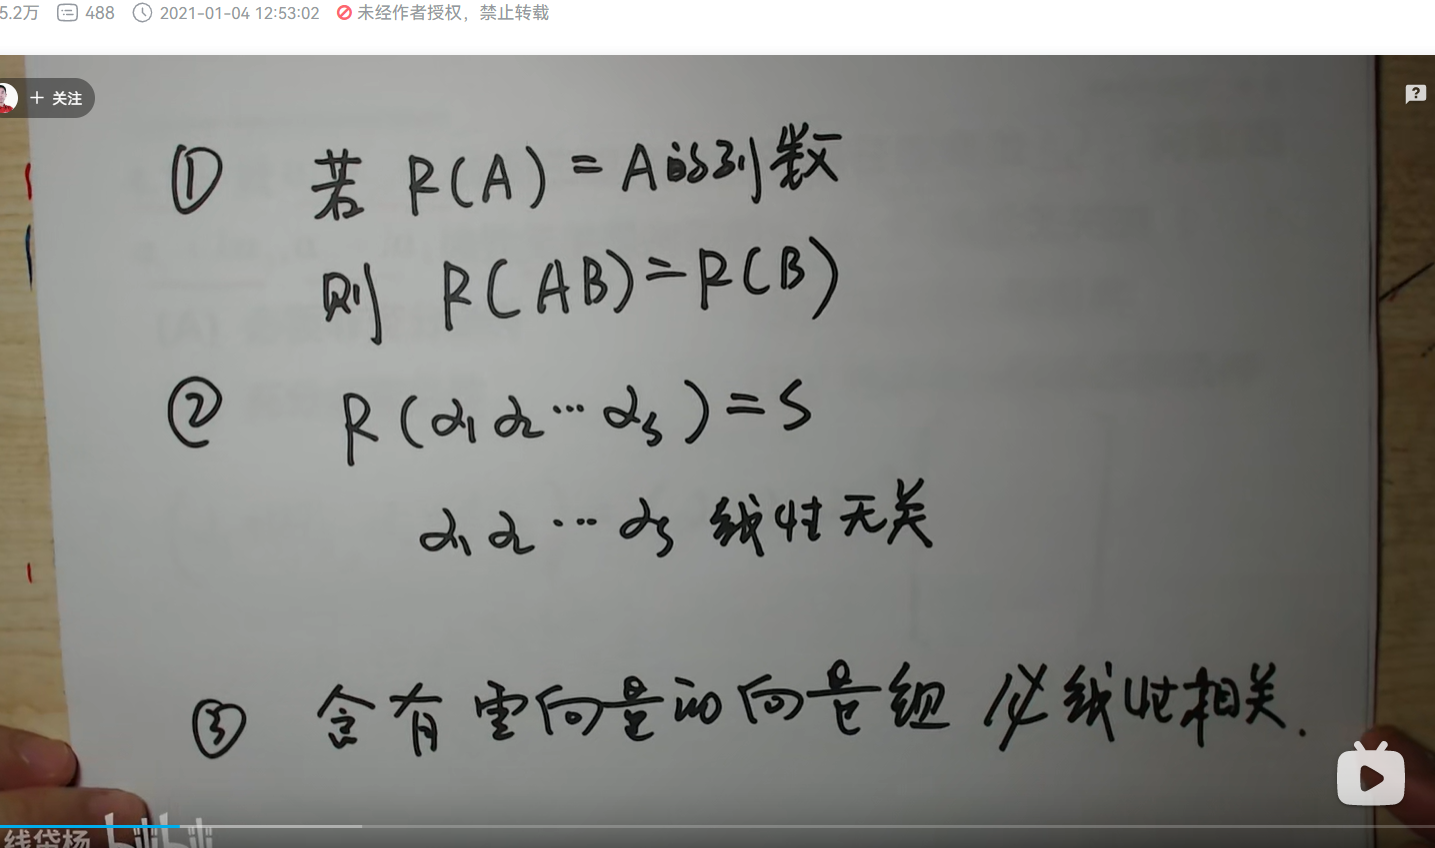 5.2万 488 2021-01-04 12:53:02 未经作者授权，禁止转载
+ 关注
① 若 R(A) = A的列数
则 R(AB) = R(B)
② R(α₁ α₂ ⋯ αₛ) = s
α₁ α₂ ⋯ αₛ 线性无关
③ 含有零向量的向量组 必线性相关.
线代杨 bilibili